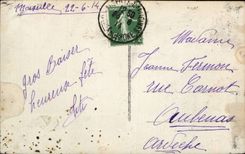 Marseille 22-6-14
Gros Baiser
heureuse fête
Madame
Jeanne Fernon
rue Carnot
Aubenas
Ardèche